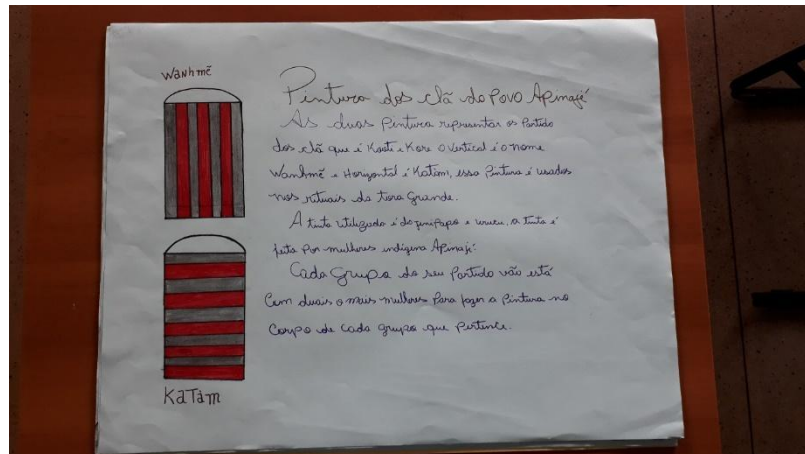 Wanhmẽ
Pintura dos clã do Povo Apinajé
As duas Pintura representar os Partido
dos clã que é Kooti e Kore o Vertical é o nome
Wanhmẽ e Horizontal é Katàm, essa Pintura é usados
nos rituais da tora Grande.
A tinta utilizado é do jenipapo e urucu, a tinta é
feita por mulheres indígena Apinajé.
Cada Grupo do seu Partido vão está
Com duais o mais mulheres Para fazer a Pintura no
Corpo de cada grupo que Pertence.
KaTàm